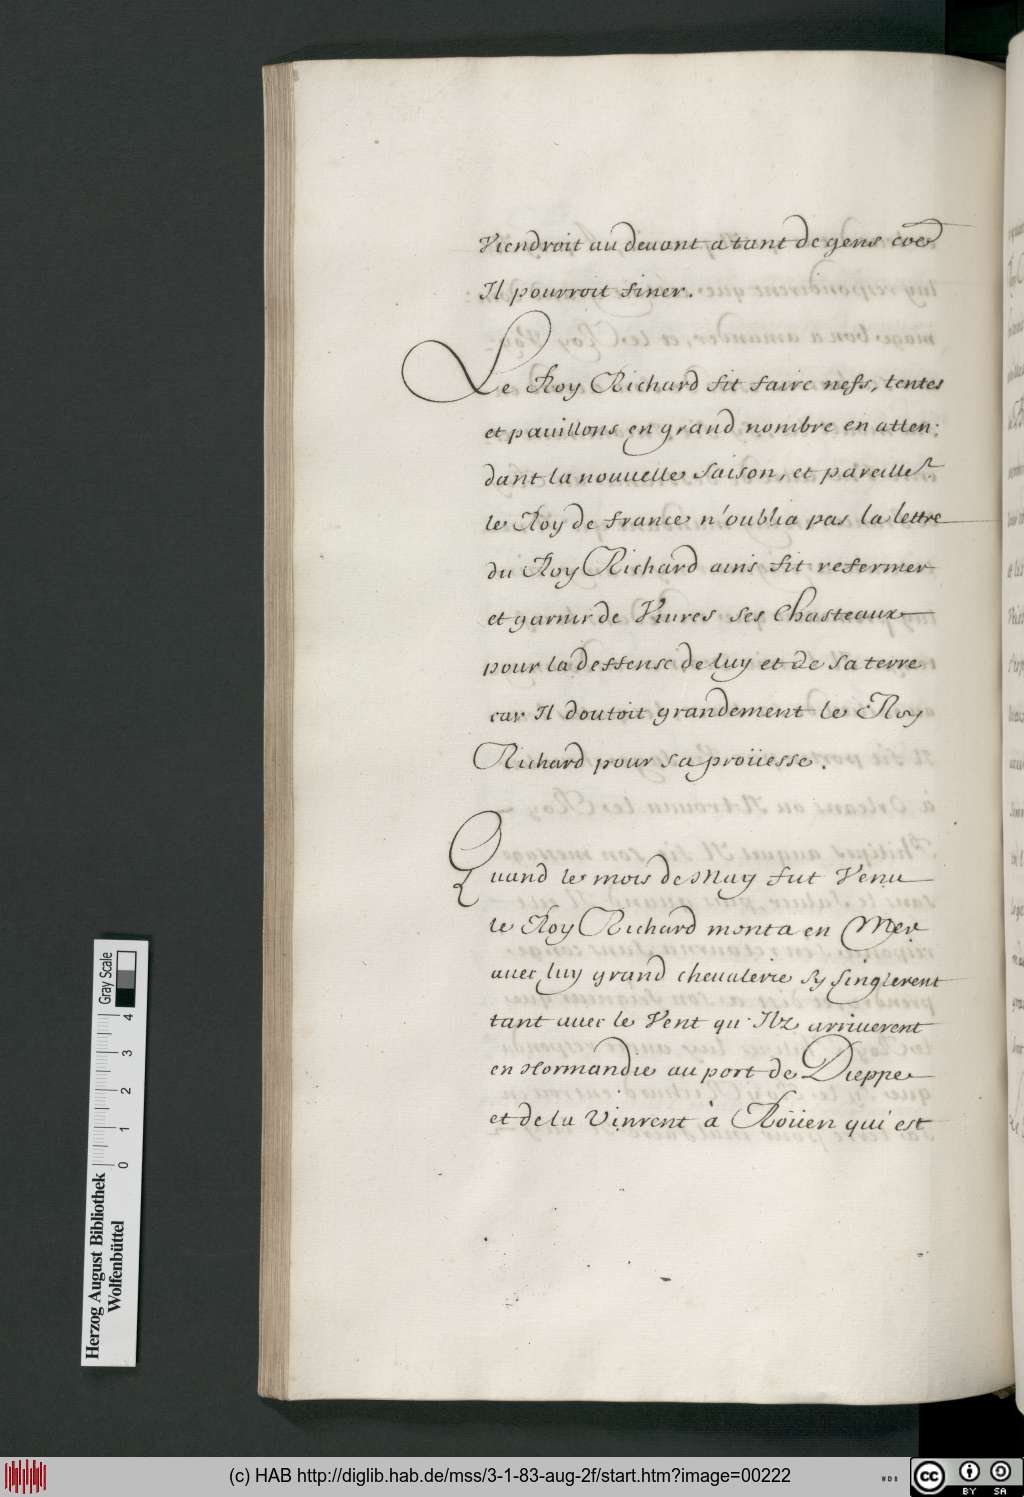 Viendroit au deuant a tant de gens coe
Il pourroit finer.
Le Roy Richard fit faire nefs, tentes
et pauillons en grand nombre en atten:
dant la nouuelle saison, et pareillet
le Roy de france n'oublia pas la lettre
du Roy Richard ains fit refermer
et garnir de Viures ses Chasteaux
pour la deffense de luy et de sa terre
car Il doutoit grandement le Roy
Richard pour sa proüesse.
Quand le mois de May fut Venu
le Roy Richard monta en Mer
auec luy grand cheualerie sy singlerent
tant auec le Vent qu'Ilz arriuerent
en Normandie au port de Dieppe
et de la Vinrent à Roüen qui est
Gray Scale
0 1 2 3 4
Herzog August Bibliothek
Wolfenbüttel
(c) HAB http://diglib.hab.de/mss/3-1-83-aug-2f/start.htm?image=00222
cc BY SA